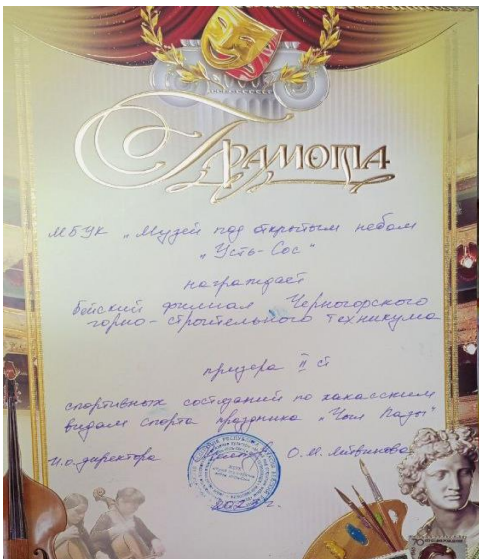 Грамота
МБУК „Музей под открытым небом
„Усть-Сос"
награждает
Бейский филиал Черногорского
горно-строительного техникума
призера II ст
спортивных состязаний по хакасским
видам спорта праздника „Чыл Пазы"
И.о. директора О. И. Литвинова